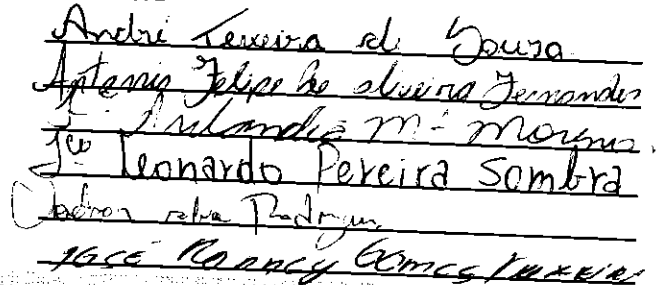 André Teixeira de Souza
Antonio Felipe de oliveira Fernandes
Mª Moreno
Fco Leonardo Pereira Sombra
Rodrigues
José Ronney Gomes Teixeira